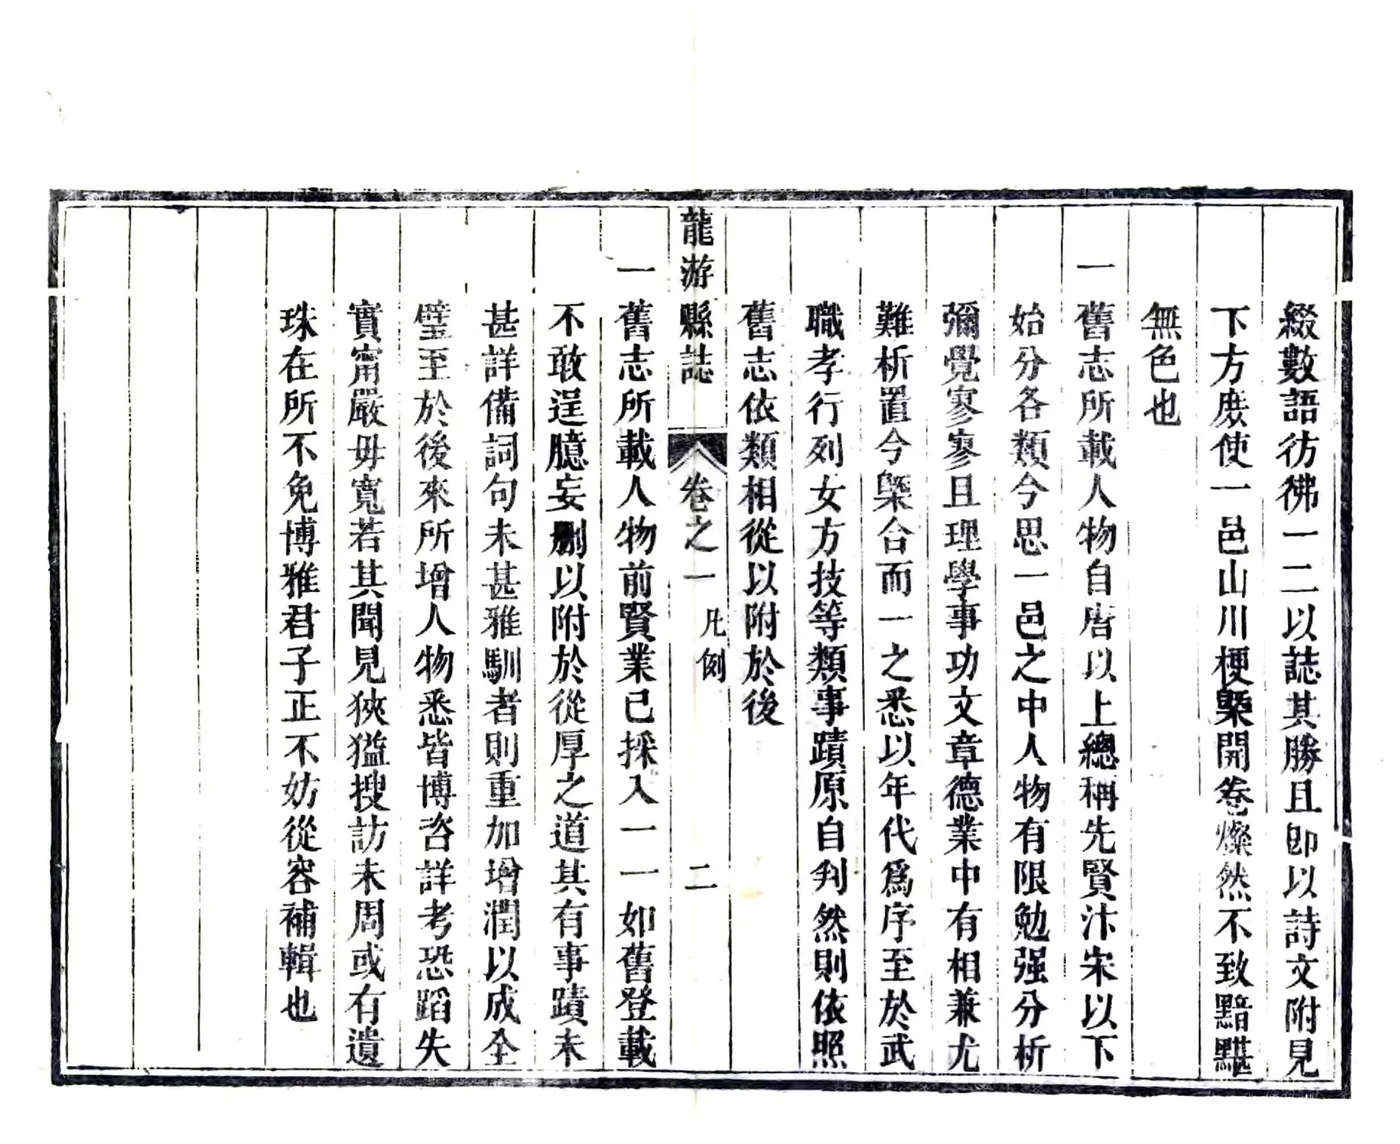 綴數語彷彿一二以誌其勝且即以詩文附見
下方庶使一邑山川梗槩開卷燦然不致黯黮
無色也
一舊志所載人物自唐以上總稱先賢汴宋以下
始分各類今思一邑之中人物有限勉强分析
彌覺寥寥且理學事功文章德業中有相兼尤
難析置今槩合而一之悉以年代爲序至於武
職孝行列女方技等類事蹟原自判然則依照
舊志依類相從以附於後
龍游縣誌 卷之一 凡例 二
一舊志所載人物前賢業已採入一一如舊登載
不敢逞臆妄刪以附於從厚之道其有事蹟未
甚詳備詞句未甚雅馴者則重加增潤以成全
璧至於後來所增人物悉皆博咨詳考恐蹈失
實甯嚴毋寬若其聞見狹猛搜訪未周或有遺
珠在所不免博雅君子正不妨從容補輯也